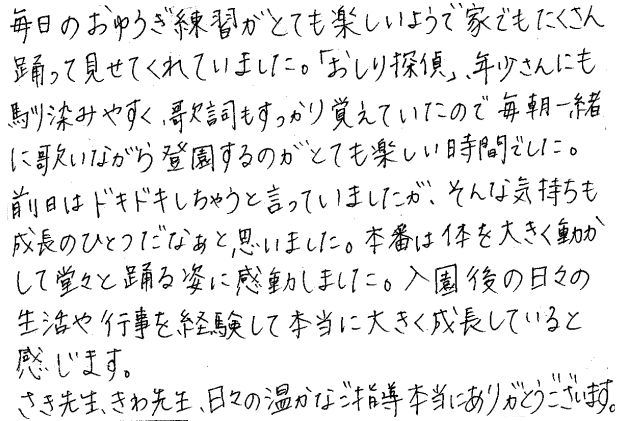 毎日のおゆうぎ練習がとても楽しいようで家でもたくさん
踊って見せてくれていました。「おしり探偵」、年少さんにも
馴染みやすく、歌詞もすっかり覚えていたので毎朝一緒
に歌いながら登園するのがとても楽しい時間でした。
前日はドキドキしちゃうと言っていましたが、そんな気持ちも
成長のひとつだなぁと思いました。本番は体を大きく動か
して堂々と踊る姿に感動しました。入園後の日々の
生活や行事を経験して本当に大きく成長していると
感じます。
さき先生、きわ先生、日々の温かなご指導本当にありがとうございます。